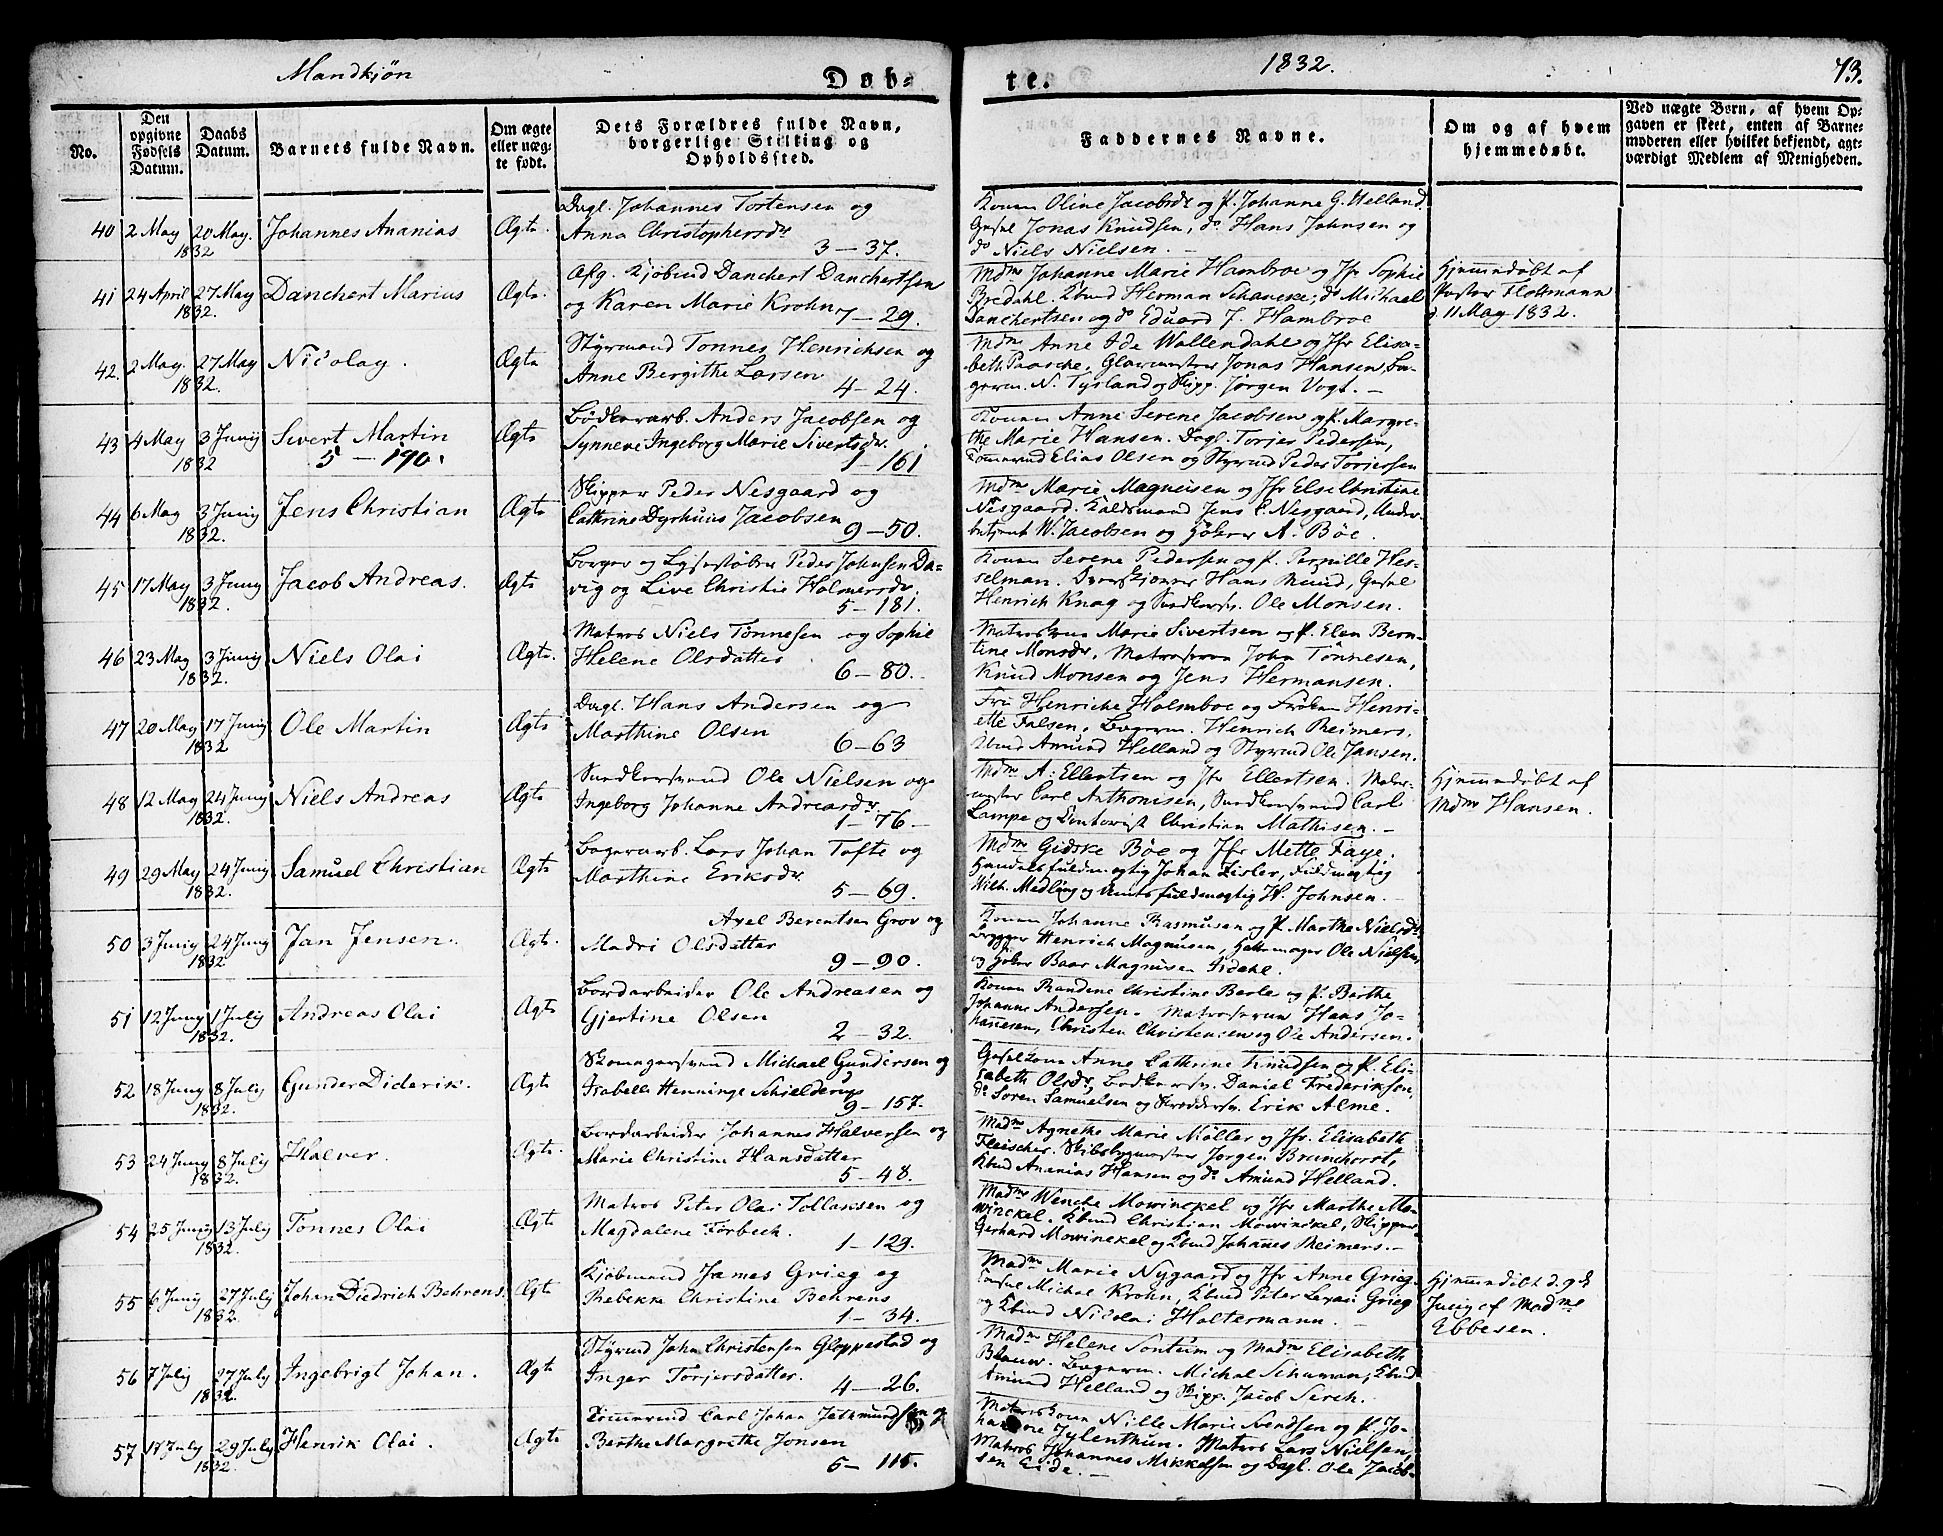 Mandkjøn
Døb-
te.
1832.
73.
No.
Den opgivne Fødsels Datum.
Daabs Datum.
Barnets fulde Navn.
Om ægte eller uægte født.
Dets Forældres fulde Navn, borgerlige Stilling og Opholdssted.
Faddernes Navne.
Om og af hvem hjemmedøbt.
Ved uægte Børn, af hvem Opgaven er skeet, enten af Barnemoderen eller hvilket bekjendt, agtværdigt Medlem af Menigheden.
40 2 May 20 May. 1832 Johannes Ananias Ægte
Dagl. Johannes Tortensen og
Anna Christophersdr
3 — 37.
Konen Oline Jacobsdr og P. Johanne G. Helland.
Jonas Knudsen, do Hans Johnsen og
do Niels Nielsen.
41 24 April 27 May 1832. Danchert Marius Ægte.
Afg. Kjøbmd Danchert Danchertsen
og Karen Marie Krohn
7 — 29.
Mdme Johanne Marie Hambroe og Jfr Sophie
Bredahl. Kbmd Herman; do Michael
Danchertsen og do Eduard J. Hambroe
Hjemmedøbt af
Pastor Flottmann
d. 11 May 1832.
42. 2 May. 27 May 1832. Nicolay. Ægte
Styrmand Tonnes Henrichsen og
Anne Bergithe Larsen
4 — 24.
Mdme Anne Ide Wallendahl og Jfr Elisa-
beth Paasche, Glarmester Jonas Hansen, Bo-
germ. N. Tysland og Skipp. Jørgen Vogt. —
43 4 May 3 Junij 1832 Sivert Martin Ægte
5 — 190.
Bødkerarb. Anders Jacobsen og
Synneve Ingeborg Marie Sivertsdr.
1 — 161
Konen Anne Serene Jacobsen og P. Margre-
the Marie Hansen. Dagl. Torjer Pedersen,
Tømmermd Elias Olsen og Styrmd Peder Torjersen
44 6 May 3 Junij 1832. Jens Christian Ægte
Skipper Peder Nesgaard og
Cathrine Dyrhuus Jacobsen
9 — 50.
Mdme Marie Magnusen og Jfr Else Christine
Nesgaard. Jens C. Nesgaard, Under-
W. Jacobsen og Høker A. Bøe.
45 17 May 3 Junij 1832. Jacob Andreas. Ægte
Borger og Lysestøber Peder Johnsen Da-
vig og Live Christie Holmersdr.
5 — 181.
Konen Serene Pedersen og P. Pernille Hes-
selman. Hans Mund,
Henrich Knag og Ole Monsen.
46 23 May 3 Junij 1832. Niels Olai Ægte.
Matros Niels Tønnesen og Sophie
Helene Olsdatter
6 — 80.
Matroskonen Marie Sivertsen og P. Elen Bern-
tine Monsdr, Matroserne John Tønnesen,
Knud Monsen og Jens Hermansen.
47 20 May 17 Junij 1832 Ole Martin Ægte
Dagl. Hans Andersen og
Marthine Olsen
6 — 63
Fru Henriche Holmboe og Frøken Henri-
ette Falsen, Bogerm. Henrich Reimers,
Kbmd Amund Helland og Styrmd Ole Jansen.
48 12 May 24 Junij 1832. Niels Andreas Ægte
Ole Nielsen og
Ingeborg Johanne Andreasdr.
1 — 76 —
Mdme A. Ellertsen og Jfr Ellertsen.
Carl Anthonisen, Carl
Lampe og Christian Mathisen. —
Hjemmedøbt af
Mdme Hansen.
49 29 May 24 Junij 1832. Samuel Christian Ægte
Bogerarb. Lars Johan Tofte og
Marthine Eriksdr.
5 — 69.
Mdme Gidske Bøe og Jfr Mette Faye.
Handelsfuldmegtig Johan Zisler, Fuldmegtig
Wilh. Medling og Amtsfuldmegtig H. Johnsen. —
50 3 Junij 24 Junij 1832 Jan Jensen. Ægte.
Axel Berentsen Grov og
Madri Olsdatter
9 — 90.
Konen Johanne Rasmusen og P. Marthe Nielsdr
Brygger Henrich Magnusen, Hattemager Ole Nielsen,
og Høker Baar Magnusen Isdahl.
51 12 Junij 1 Julij 1832. Andreas Olai Ægte
Bordarbeider Ole Andreasen og
Gjertine Olsen
2 — 32.
Konen Randine Christine Berle og P. Berthe
Johanne Andersen. Matroserne Hans Jo-
hanesen, Christen Christensen og Ole Andersen.
52 18 Junij 8 Julij 1832. Gunder Diderik. Ægte
Skomagersvend Michael Gundersen og
Isabelle Henninge Schielderup
9 — 157.
Anne Cathrine Knudsen og P. Eli-
sabeth Olsdr, Bødkersv. Daniel Frederiksen,
do Søren Samuelsen og Skreddersv. Erik Alme.
53 24 Junij 8 Julij 1832. Halver. Ægte.
Bordarbeider Johannes Halversen og
Marie Christine Hansdatter
5 — 48.
Madme Agnethe Marie Møller og Jfr. Elisabeth
Fleischer. Skibsbygmester Jørgen Brunchorst,
Kbmd Ananias Hansen og do Amund Helland.
54 25 Junij 13 Julij 1832. Tønnes Olai Ægte
Matros Peter Olai Tollaksen og
Magdalene Forbech.
1 — 129.
Madme Wenche Mowinckel og Jfr Marthe Mo-
winckel. Kbmd Christian Mowinckel, Skipper
Gerhard Mowinckel og Kbmd Johannes Reimers. —
55 6 Junij 27 Julij 1832. Johan Diedrich Behrens. Ægte
Kjøbmand James Grieg og
Rebekke Christine Behrens
1 — 34.
Madme Marie Nygaard og Jfr Anne Grieg.
Michael Krohn, Kbmd Peter Grieg
og Kbmd Nicolai Holtermann. —
Hjemmedøbt d. 9de
Junij af Madme
Ebbesen.
56 7 Julij 27 Julij 1832. Ingebrigt Johan. Ægte
Styrmd John Christensen Gloppestad og
Inger Torjersdatter.
4 — 26.
Madme Helene Sontum og Madme Elisabeth
Blauw. Bogerm. Michal Schuman, Kbmd
Amund Helland og Skipp. Jacob Serch.
57 17 July 29 July 1832. Henrik Olai. Ægte
Tømmermd Carl Johan Jethmundsen og
Berthe Margrethe Jonsen
5 — 115.
Matroskonen Nille Marie Svendsen og P. Jo-
hanne Jylenthun. Matros Lars Nielsen,
Matros Johannes Mikkelsen og Dagl. Ole Jacob-
sen Eide. —